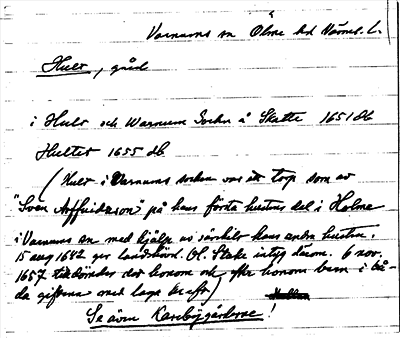 Varnums sn Ölme hd Värml. L.
Hult, gård
i Hult och Warnum Sockn å Skatte 1651 db
Hultet 1655 db
(Hult i Varnums socken var ett torp som av
"Sven Arffuidzson" på hans första hustrus del i Holma
i Varnums sn med hjälp av särskilt hans andra hustru.
15 aug 1642 ger landshövd. Ol. Stake intyg därom. 6 nov.
1657 tilldömdes det honom och efter honom barn i bå-
da giftena med laga kraft)
Se även Karsbyggårdarne!